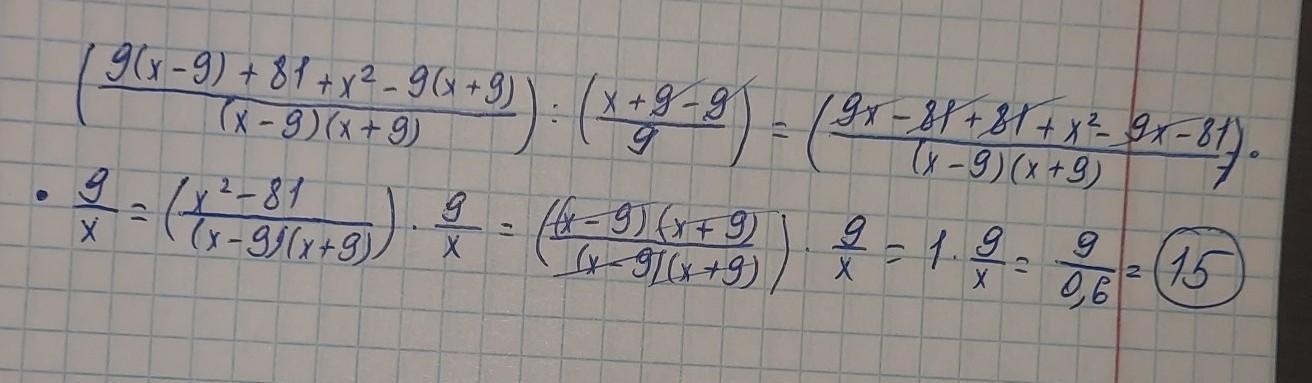 (9(x-9)+81+x²-9(x+9) / (x-9)(x+9)) : (x+9-9 / 9) = (9x-81+81+x²-9x-81 / (x-9)(x+9)) ·
· 9/x = (x²-81 / (x-9)(x+9)) · 9/x = ((x-9)(x+9) / (x-9)(x+9)) · 9/x = 1 · 9/x = 9/0,6 = 15